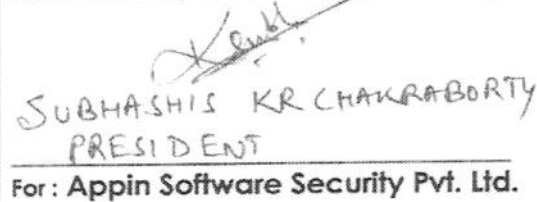 SUBHASHIS KR CHAKRABORTY
PRESIDENT
For : Appin Software Security Pvt. Ltd.